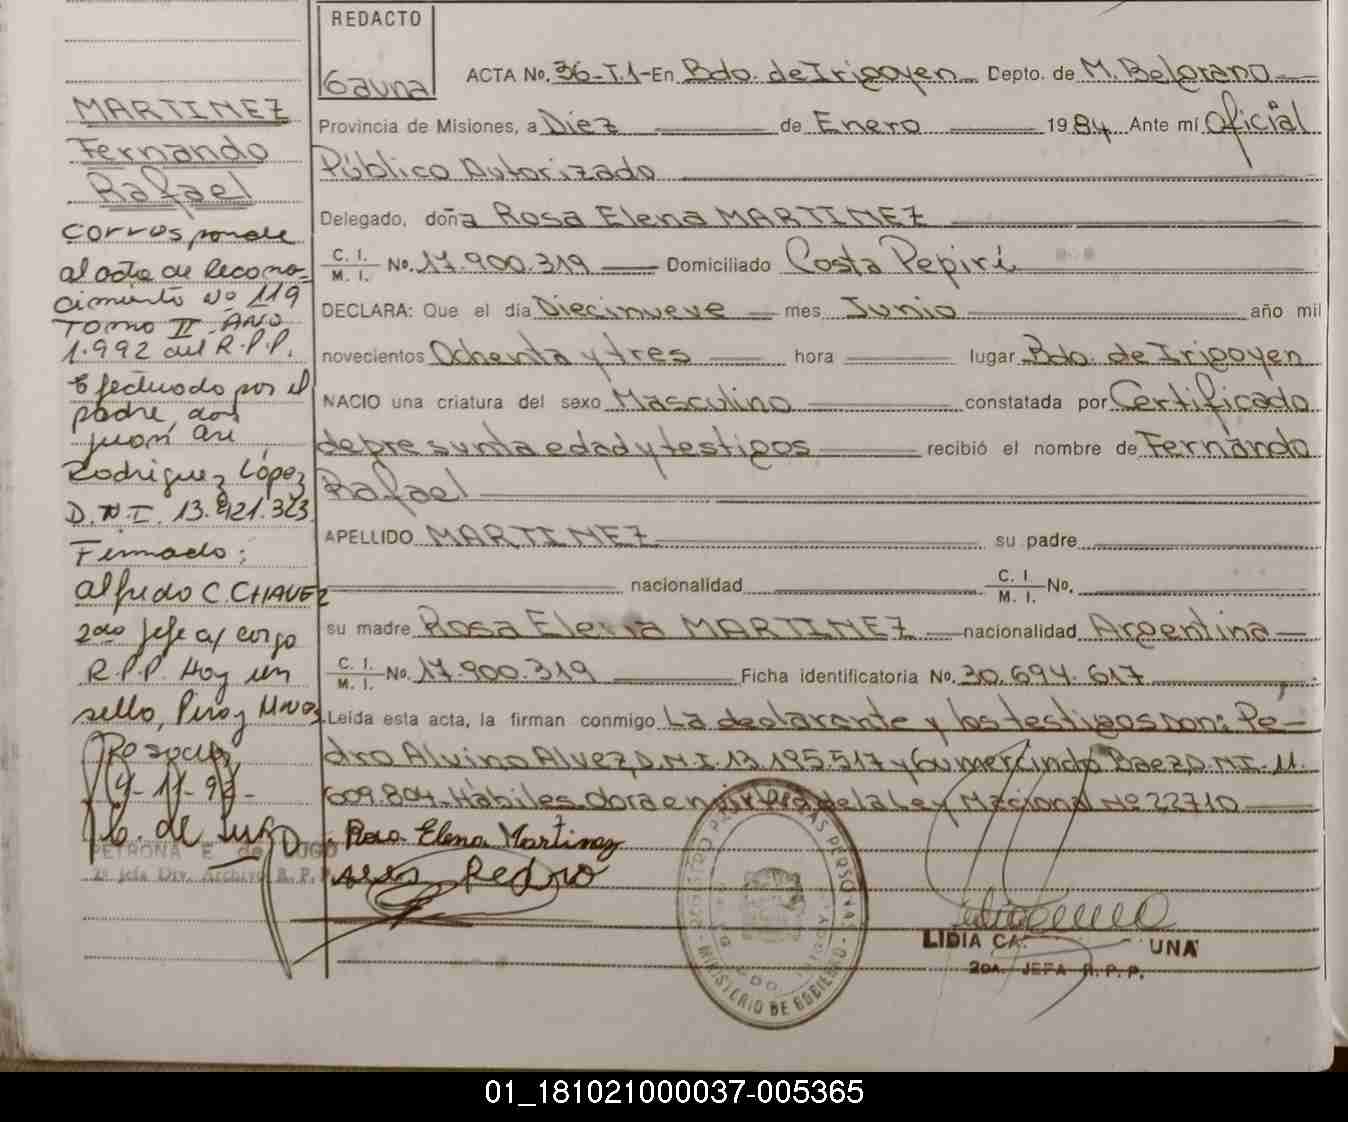 REDACTO
Gauna
ACTA No. 36-T.1-En Bdo. de Irigoyen Depto. de M. Belgrano
Provincia de Misiones, a Diez de Enero 1984 Ante mí Oficial
Público Autorizado
Delegado, doña Rosa Elena MARTINEZ
C. I. / M. I. No. 17.900.319 Domiciliado Costa Pepirí
DECLARA: Que el día Diecinueve mes Junio año mil
novecientos Ochenta y tres hora lugar Bdo. de Irigoyen
NACIO una criatura del sexo Masculino constatada por Certificado
de presunta edad y testigos recibió el nombre de Fernando
Rafael
APELLIDO MARTINEZ su padre
nacionalidad C. I. / M. I. No.
su madre Rosa Elena MARTINEZ nacionalidad Argentina
C. I. / M. I. No. 17.900.319 Ficha identificatoria No. 30.694.617
Leída esta acta, la firman conmigo La declarante y los testigos son: Pe-
dro Alvino Alvez, D.N.I. 13.195.517 y Gumercindo Baez, D.N.I. 11.
609.804. Hábiles. Obra en virtud de la Ley Nacional Nº 22710
MARTINEZ
Fernando
Rafael
corresponde
al acta de Recono-
cimiento Nº 119
TOMO II AÑO
1.992 del R.P.P.
Efectuado por el
padre, don
Juan
Rodriguez López
D.N.I. 13.921.323
Firmado:
Alfredo C. CHAVEZ
2do Jefe a/ cargo
R.P.P. Hay un
sello, Pcia/ Mnes
Posadas,
PETRONA E. de LUGO
2º Jefa Div. Archivo R. P. P.
Rosa Elena Martinez
Pedro
MINISTERIO DE GOBIERNO
LIDIA CA UNA
2DA. JEFA R. P. P.
01_181021000037-005365